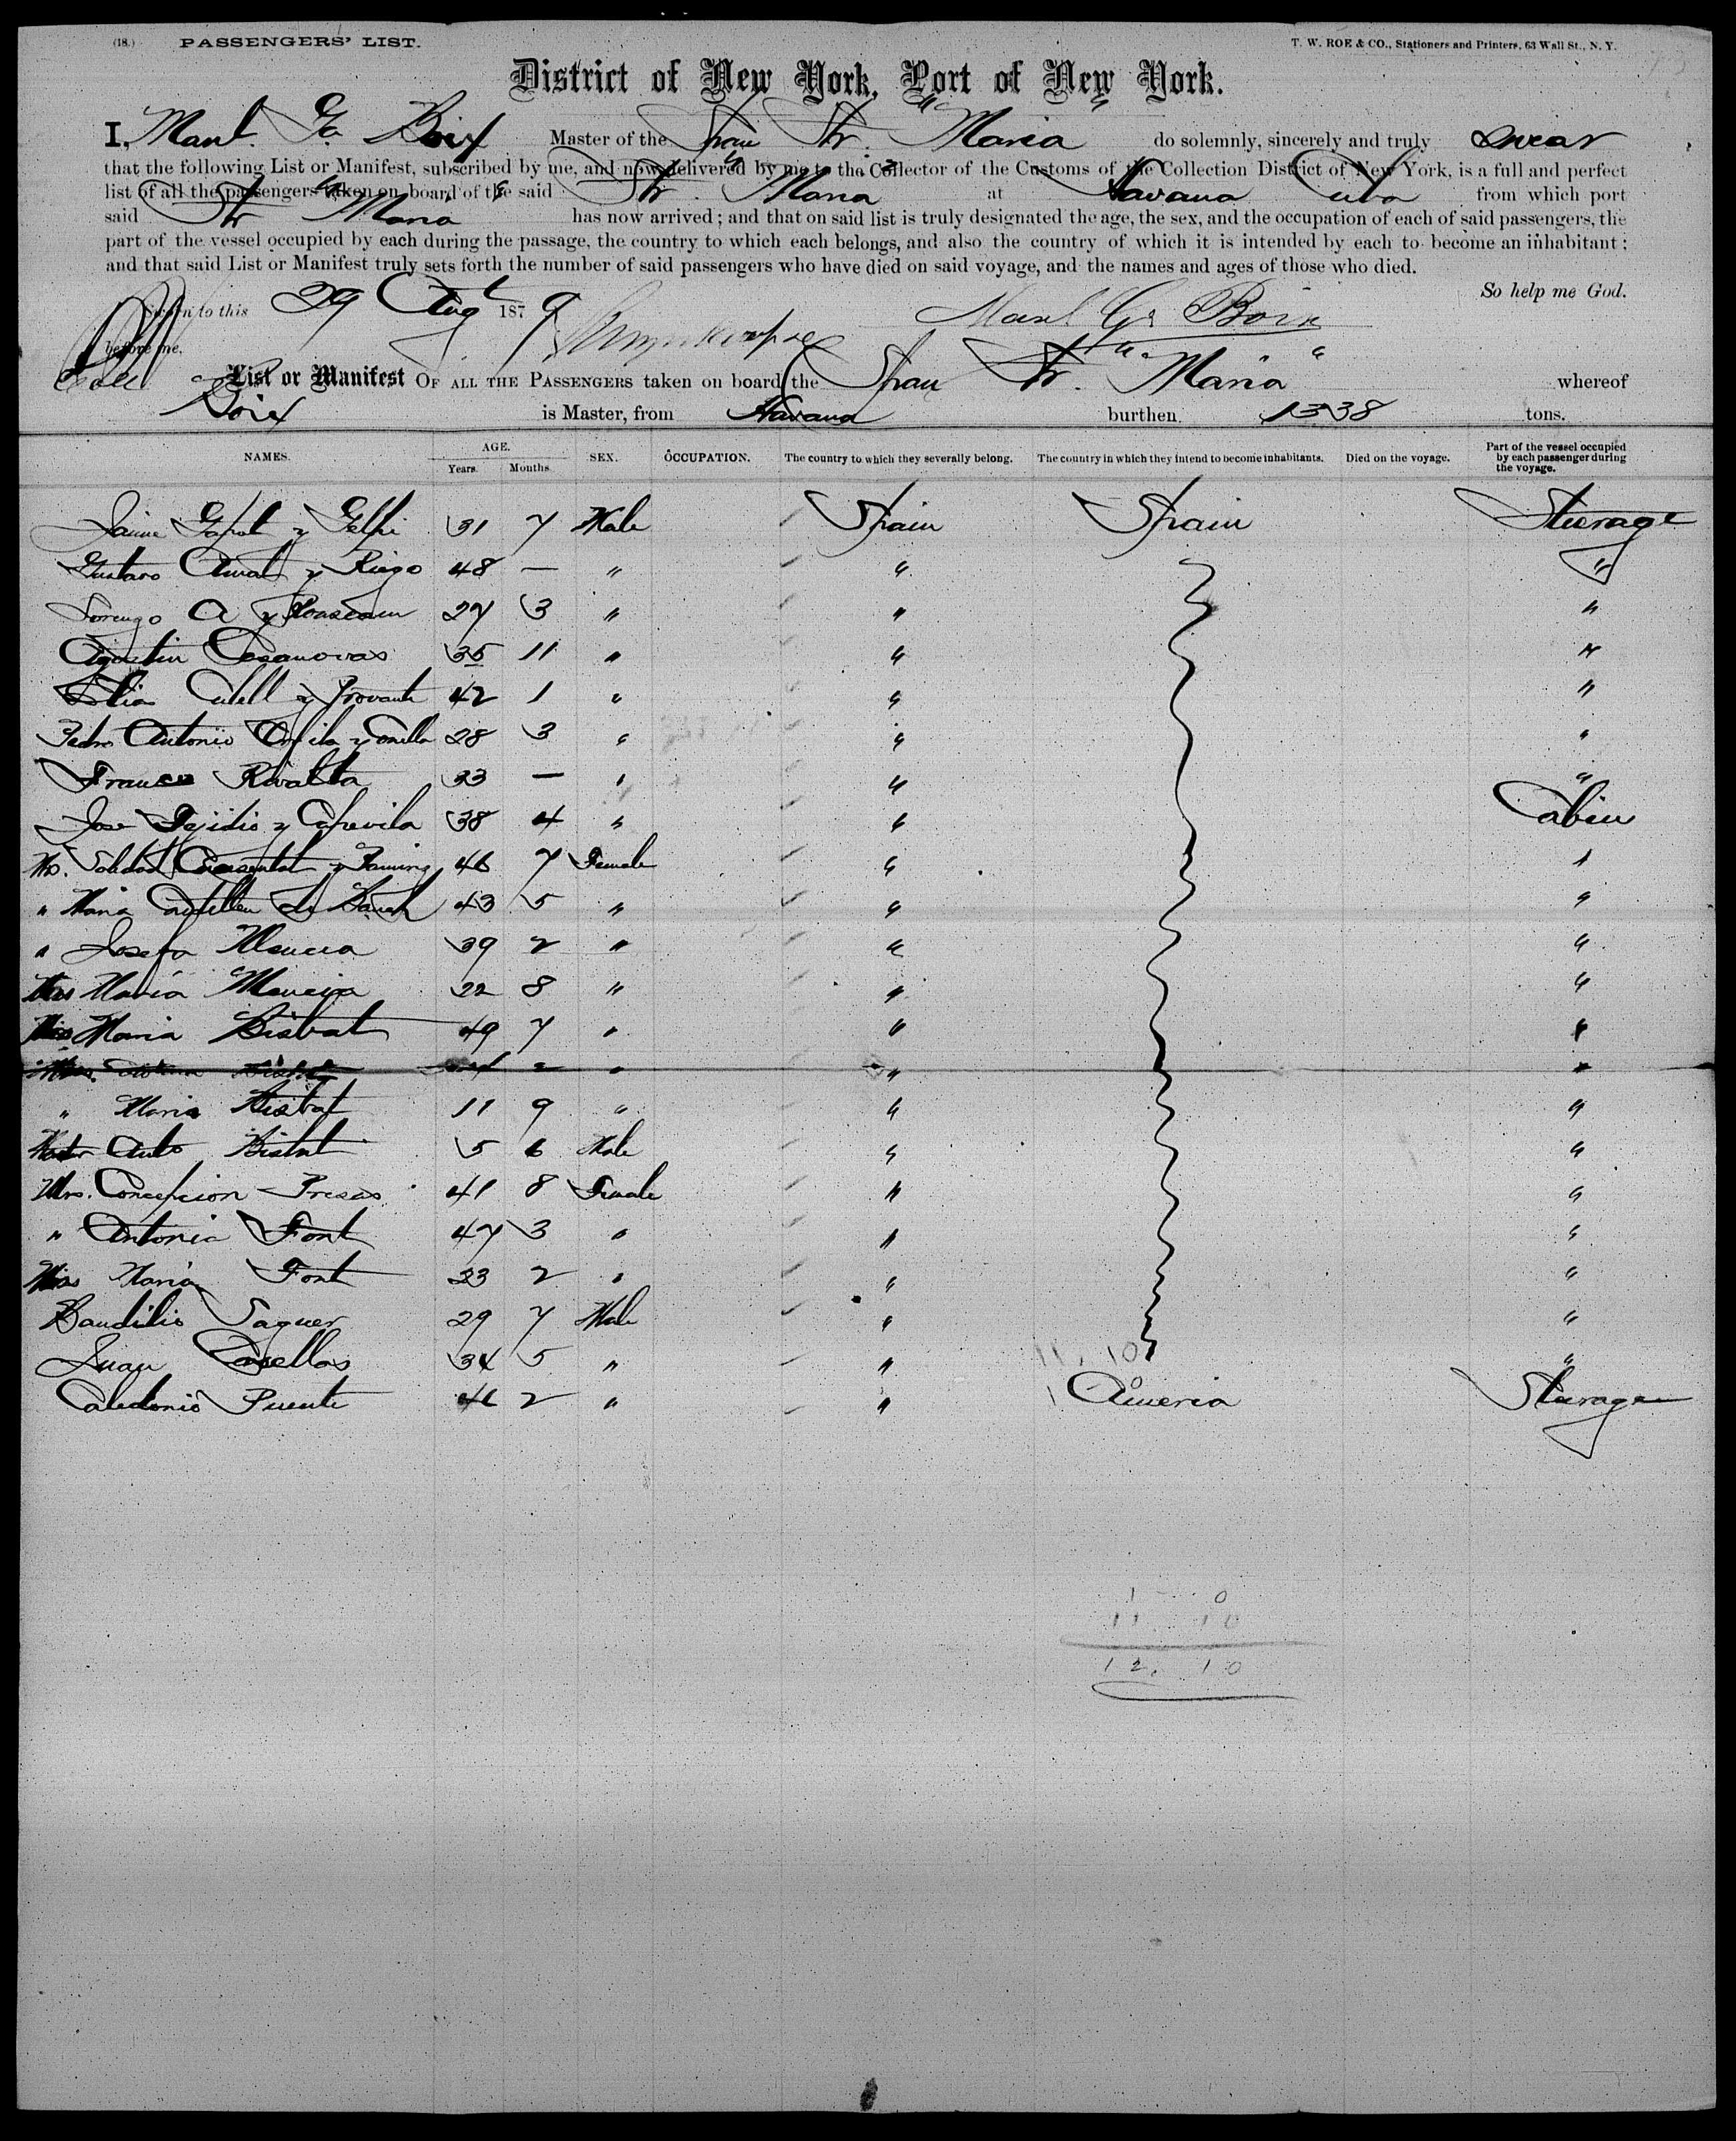 (18.) PASSENGERS' LIST. T. W. ROE & CO., Stationers and Printers, 63 Wall St., N. Y.
District of New York, Port of New York.
I, Manl. Ga. Boix Master of the Span Str. "Maria" do solemnly, sincerely and truly swear
that the following List or Manifest, subscribed by me, and now delivered by me to the Collector of the Customs of the Collection District of New York, is a full and perfect
list of all the passengers taken on board of the said Str. "Maria" at Havana Cuba from which port
said Str "Maria" has now arrived; and that on said list is truly designated the age, the sex, and the occupation of each of said passengers, the
part of the vessel occupied by each during the passage, the country to which each belongs, and also the country of which it is intended by each to become an inhabitant;
and that said List or Manifest truly sets forth the number of said passengers who have died on said voyage, and the names and ages of those who died.
So help me God.
Sworn to this 29 Augt 1879 Manl. Ga Boix
before me,
List or Manifest OF ALL THE PASSENGERS taken on board the Span Str. "Maria" whereof
Boix is Master, from Havana burthen 1338 tons.
NAMES. AGE. Years. Months. SEX. OCCUPATION. The country to which they severally belong. The country in which they intend to become inhabitants. Died on the voyage. Part of the vessel occupied by each passenger during the voyage.
Jaime y Gelpi 31 7 Male Spain Spain Steerage
Gustavo y Riego 48 — " " "
Lorenzo A y 27 3 " " "
Agustin Casanovas 35 11 " " "
y 42 1 " " "
Pedro Antonio Orfila y 28 3 " " "
Franco Rivalta 33 — " " "
Jose y Capevila 38 4 " " Cabin
Mrs. Soledad y 46 7 Female " "
" Maria 43 5 " " "
" Josefa Mencia 39 2 " " "
Miss Maria Mencia 22 8 " " "
Maria Bisbat 49 7 " " "
2 " " "
" Maria Bisbat 11 9 " " "
Master Anto Bisbat 5 6 Male " "
Mrs. Concepcion Presas 41 8 Female " "
" Antonia Font 47 3 " " "
Miss Maria Font 23 2 " " "
Baudilio Saguer 29 7 Male " "
Juan Casellas 34 5 " " "
Caledonio Puente 46 2 " " America Steerage
11. 10
12. 10